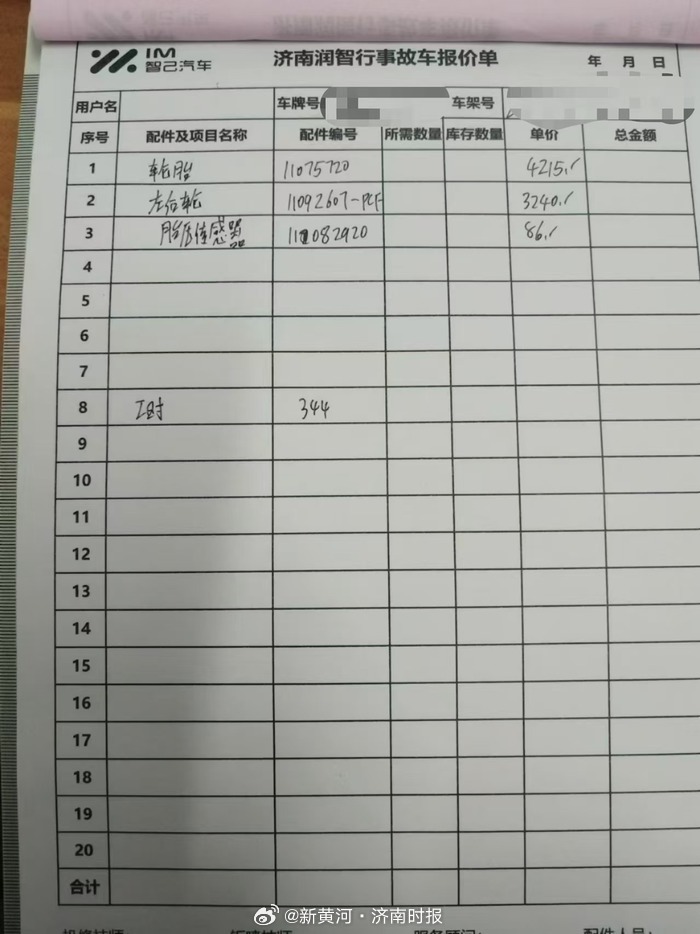 IM
智己汽车
济南润智行事故车报价单
年 月 日
用户名 车牌号 车架号
序号 配件及项目名称 配件编号 所需数量 库存数量 单价 总金额
1 轮胎 11075720 4215.
2 左后轮 11092607-PCF 3240.
3 胎压传感器 11082920 86.
4
5
6
7
8 工时 344
9
10
11
12
13
14
15
16
17
18
19
20
合计
@新黄河·济南时报
服务顾问: 配件人员: